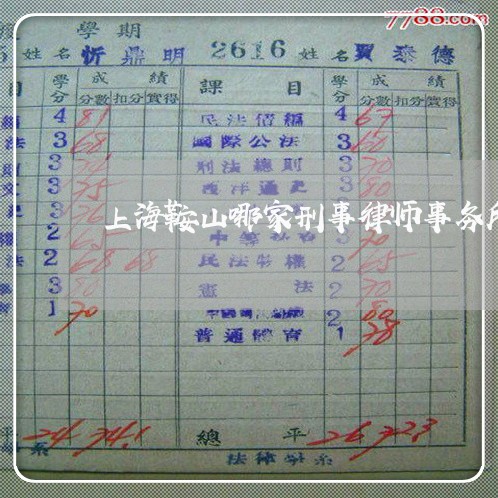 7788.com
學期
姓名 忻鼎明 2616 姓名 賈泰德
目 學分 成績 課目 學分 成績
分數 扣分 實得 分數 扣分 實得
4 81 民法債編 4 67
法 3 68 國際公法 3 60
3 刑法總則 3 70
3 75 西洋通史 3 80
3 76
上海鞍山哪家刑事律师事务所
2 65 3 70
法 2 68 68 民法物權 2 65
3 80 憲法 2 70
1 70 2 80
普通體育 1 78
平 24 74.1 總平 26 72.3
系 法律學系